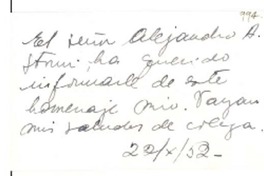 994.
El señor Alejandro A.
Storni, ha querido
informarle de este
homenaje mío. Vayan
mis saludos de colega.
22/X/52.